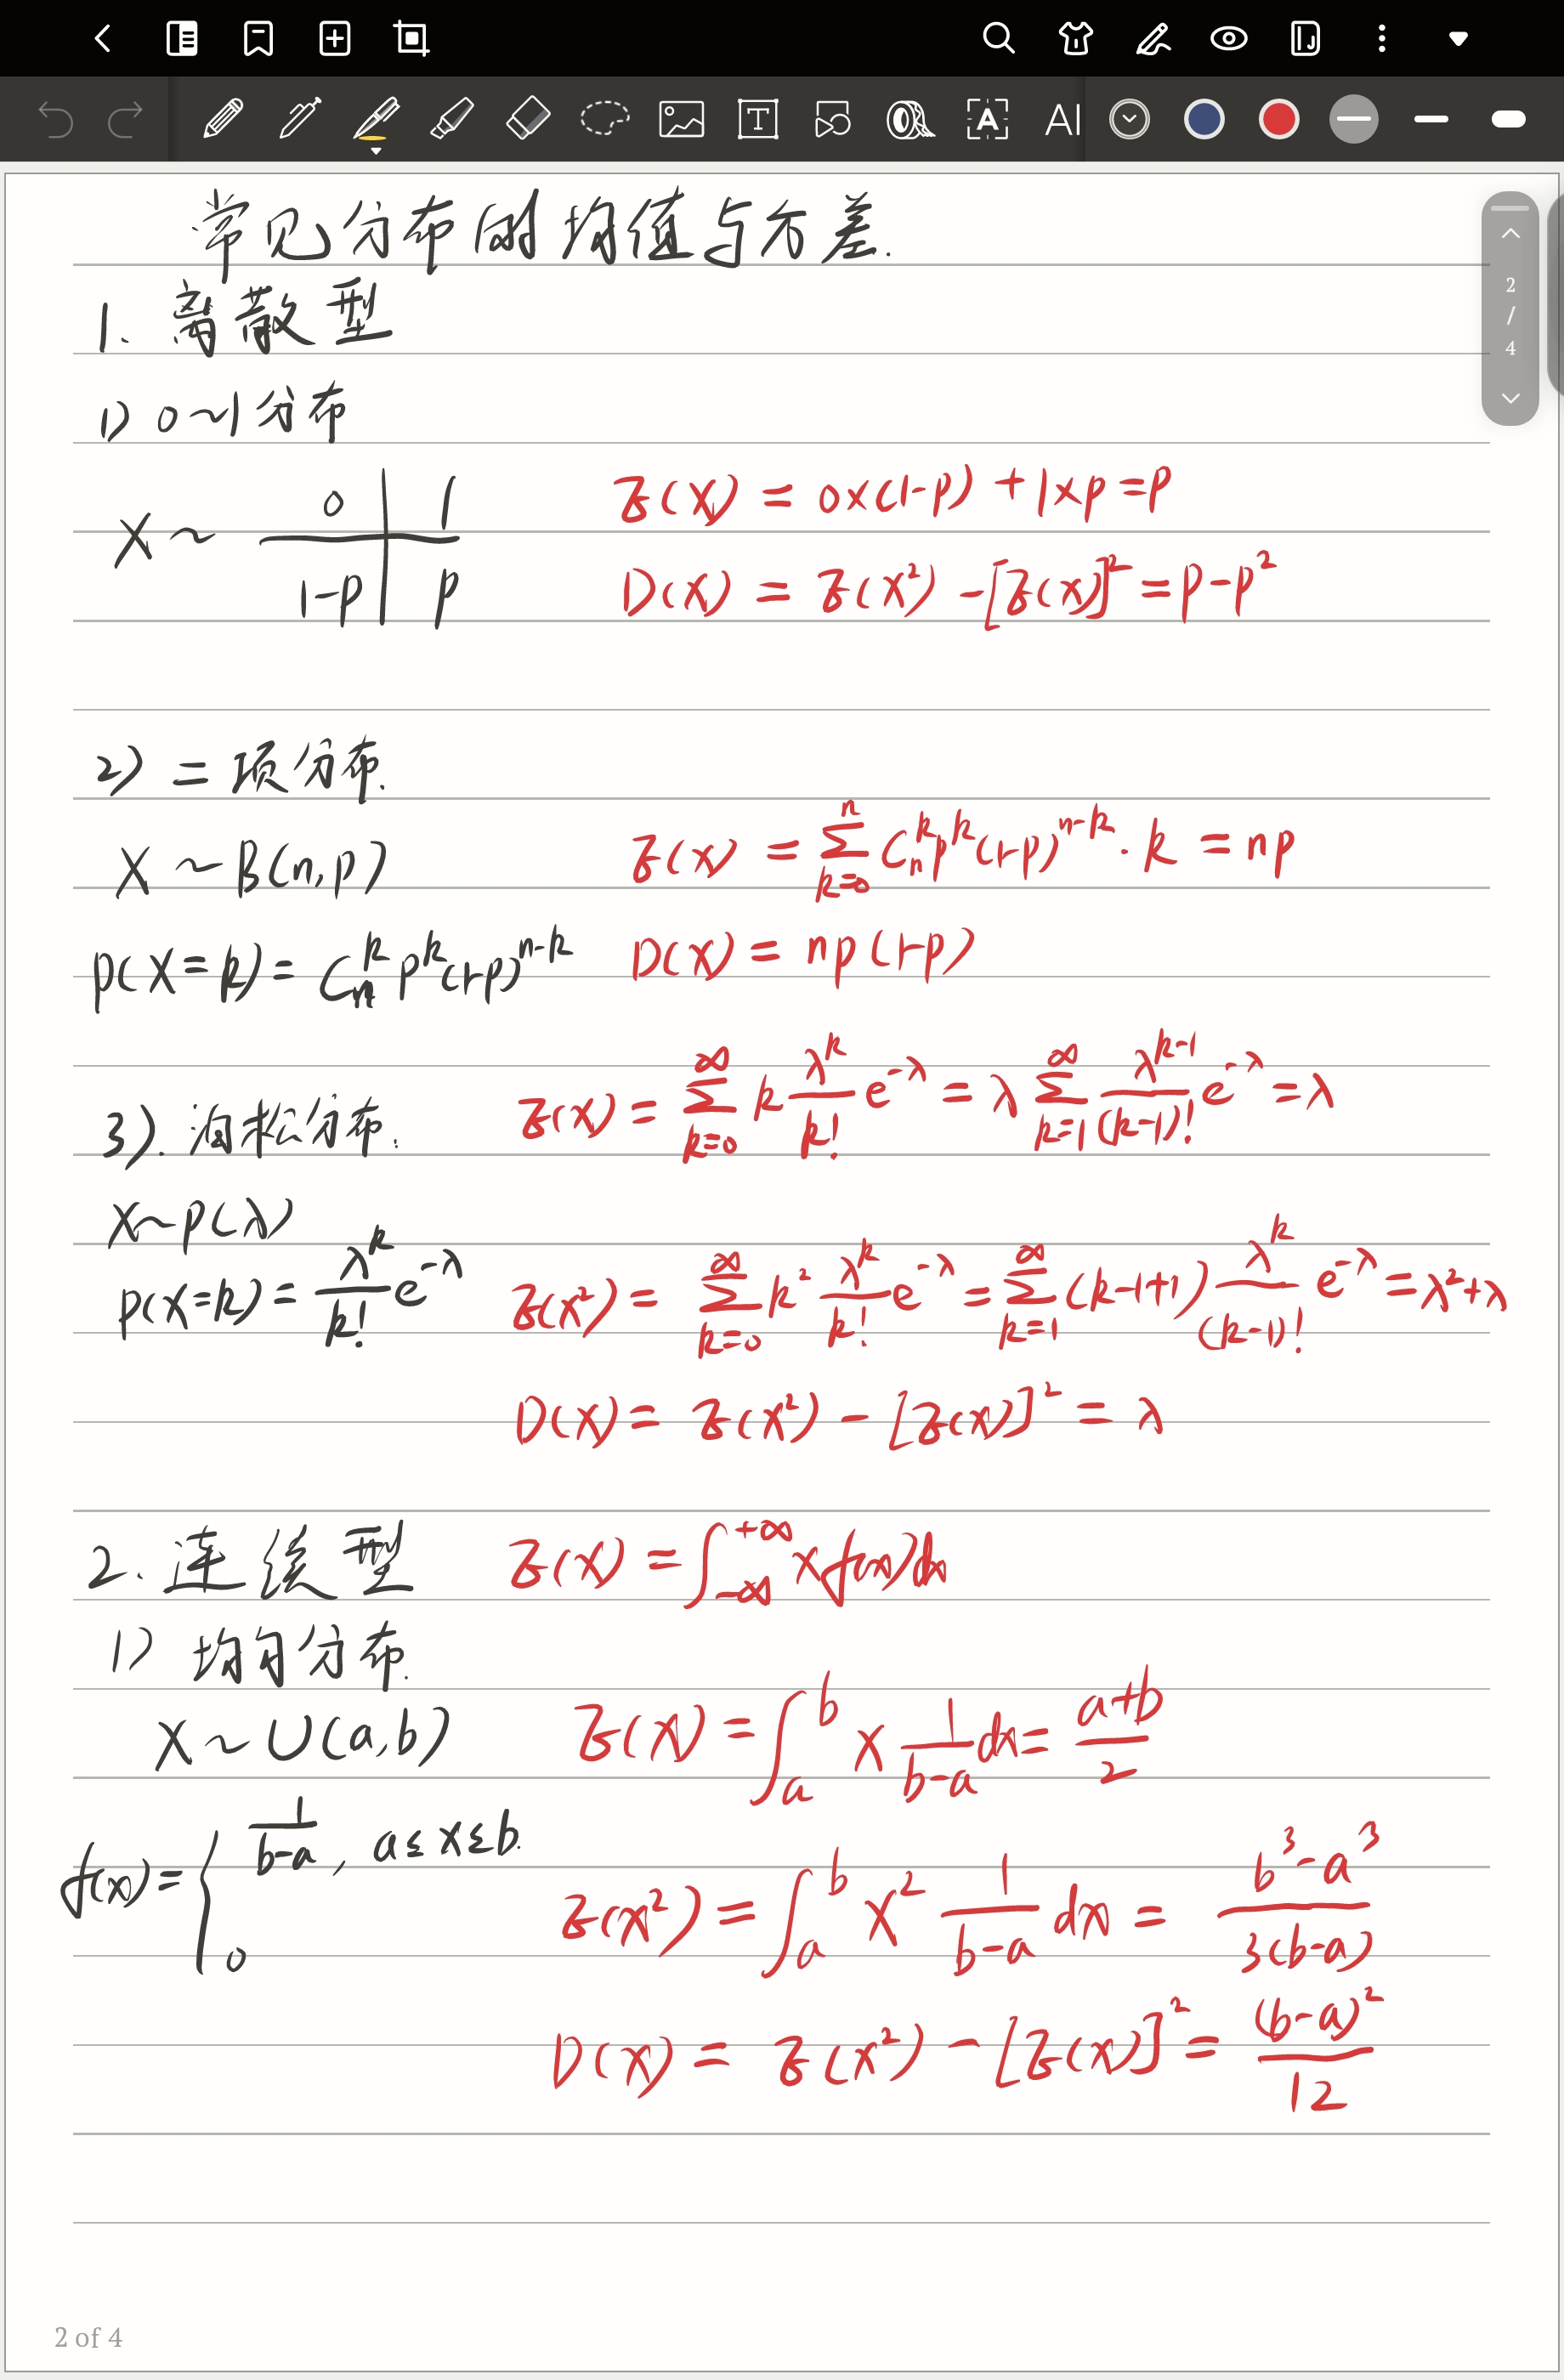 常见分布的均值与方差.
1. 离散型
1) 0~1分布
X ~ 0 | 1
1-p | p
E(X) = 0×(1-p) + 1×p = p
D(X) = E(X²) - [E(X)]² = p - p²
2) 二项分布.
X ~ B(n,p)
E(X) = ∑_{k=0}^{n} C_n^k p^k (1-p)^{n-k} · k = np
P(X=k) = C_n^k p^k (1-p)^{n-k}
D(X) = np(1-p)
3). 泊松分布.
E(X) = ∑_{k=0}^{∞} k λ^k/k! e^{-λ} = λ ∑_{k=1}^{∞} λ^{k-1}/(k-1)! e^{-λ} = λ
X~P(λ)
P(X=k) = λ^k/k! e^{-λ}
E(X²) = ∑_{k=0}^{∞} k² λ^k/k! e^{-λ} = ∑_{k=1}^{∞} (k-1+1) λ^k/(k-1)! e^{-λ} = λ²+λ
D(X) = E(X²) - [E(X)]² = λ
2. 连续型
E(X) = ∫_{-∞}^{+∞} x f(x) dx
1) 均匀分布.
X ~ U(a,b)
E(X) = ∫_a^b x 1/(b-a) dx = (a+b)/2
f(x) = { 1/(b-a), a≤x≤b.
0
E(X²) = ∫_a^b x² 1/(b-a) dx = (b³-a³)/(3(b-a))
D(X) = E(X²) - [E(X)]² = (b-a)²/12
2 / 4
2 of 4